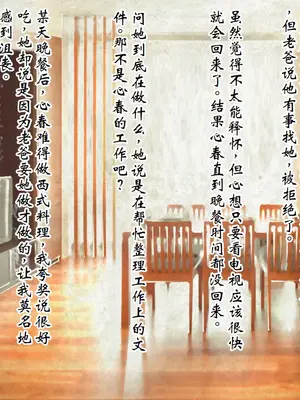 ，但老爸说他有事找她，被拒绝了。
虽然觉得不太能释怀，但心想只要看电视应该很快
就会回来了。结果心春直到晚餐时间都没回来。
问她到底在做什么，她说是在帮忙整理工作上的文
件。那不是心春的工作吧？
某天晚餐后，心春难得做西式料理，我夸奖说很好
吃，她却说是因为老爸要她做才做的，让我莫名地
感到沮丧。